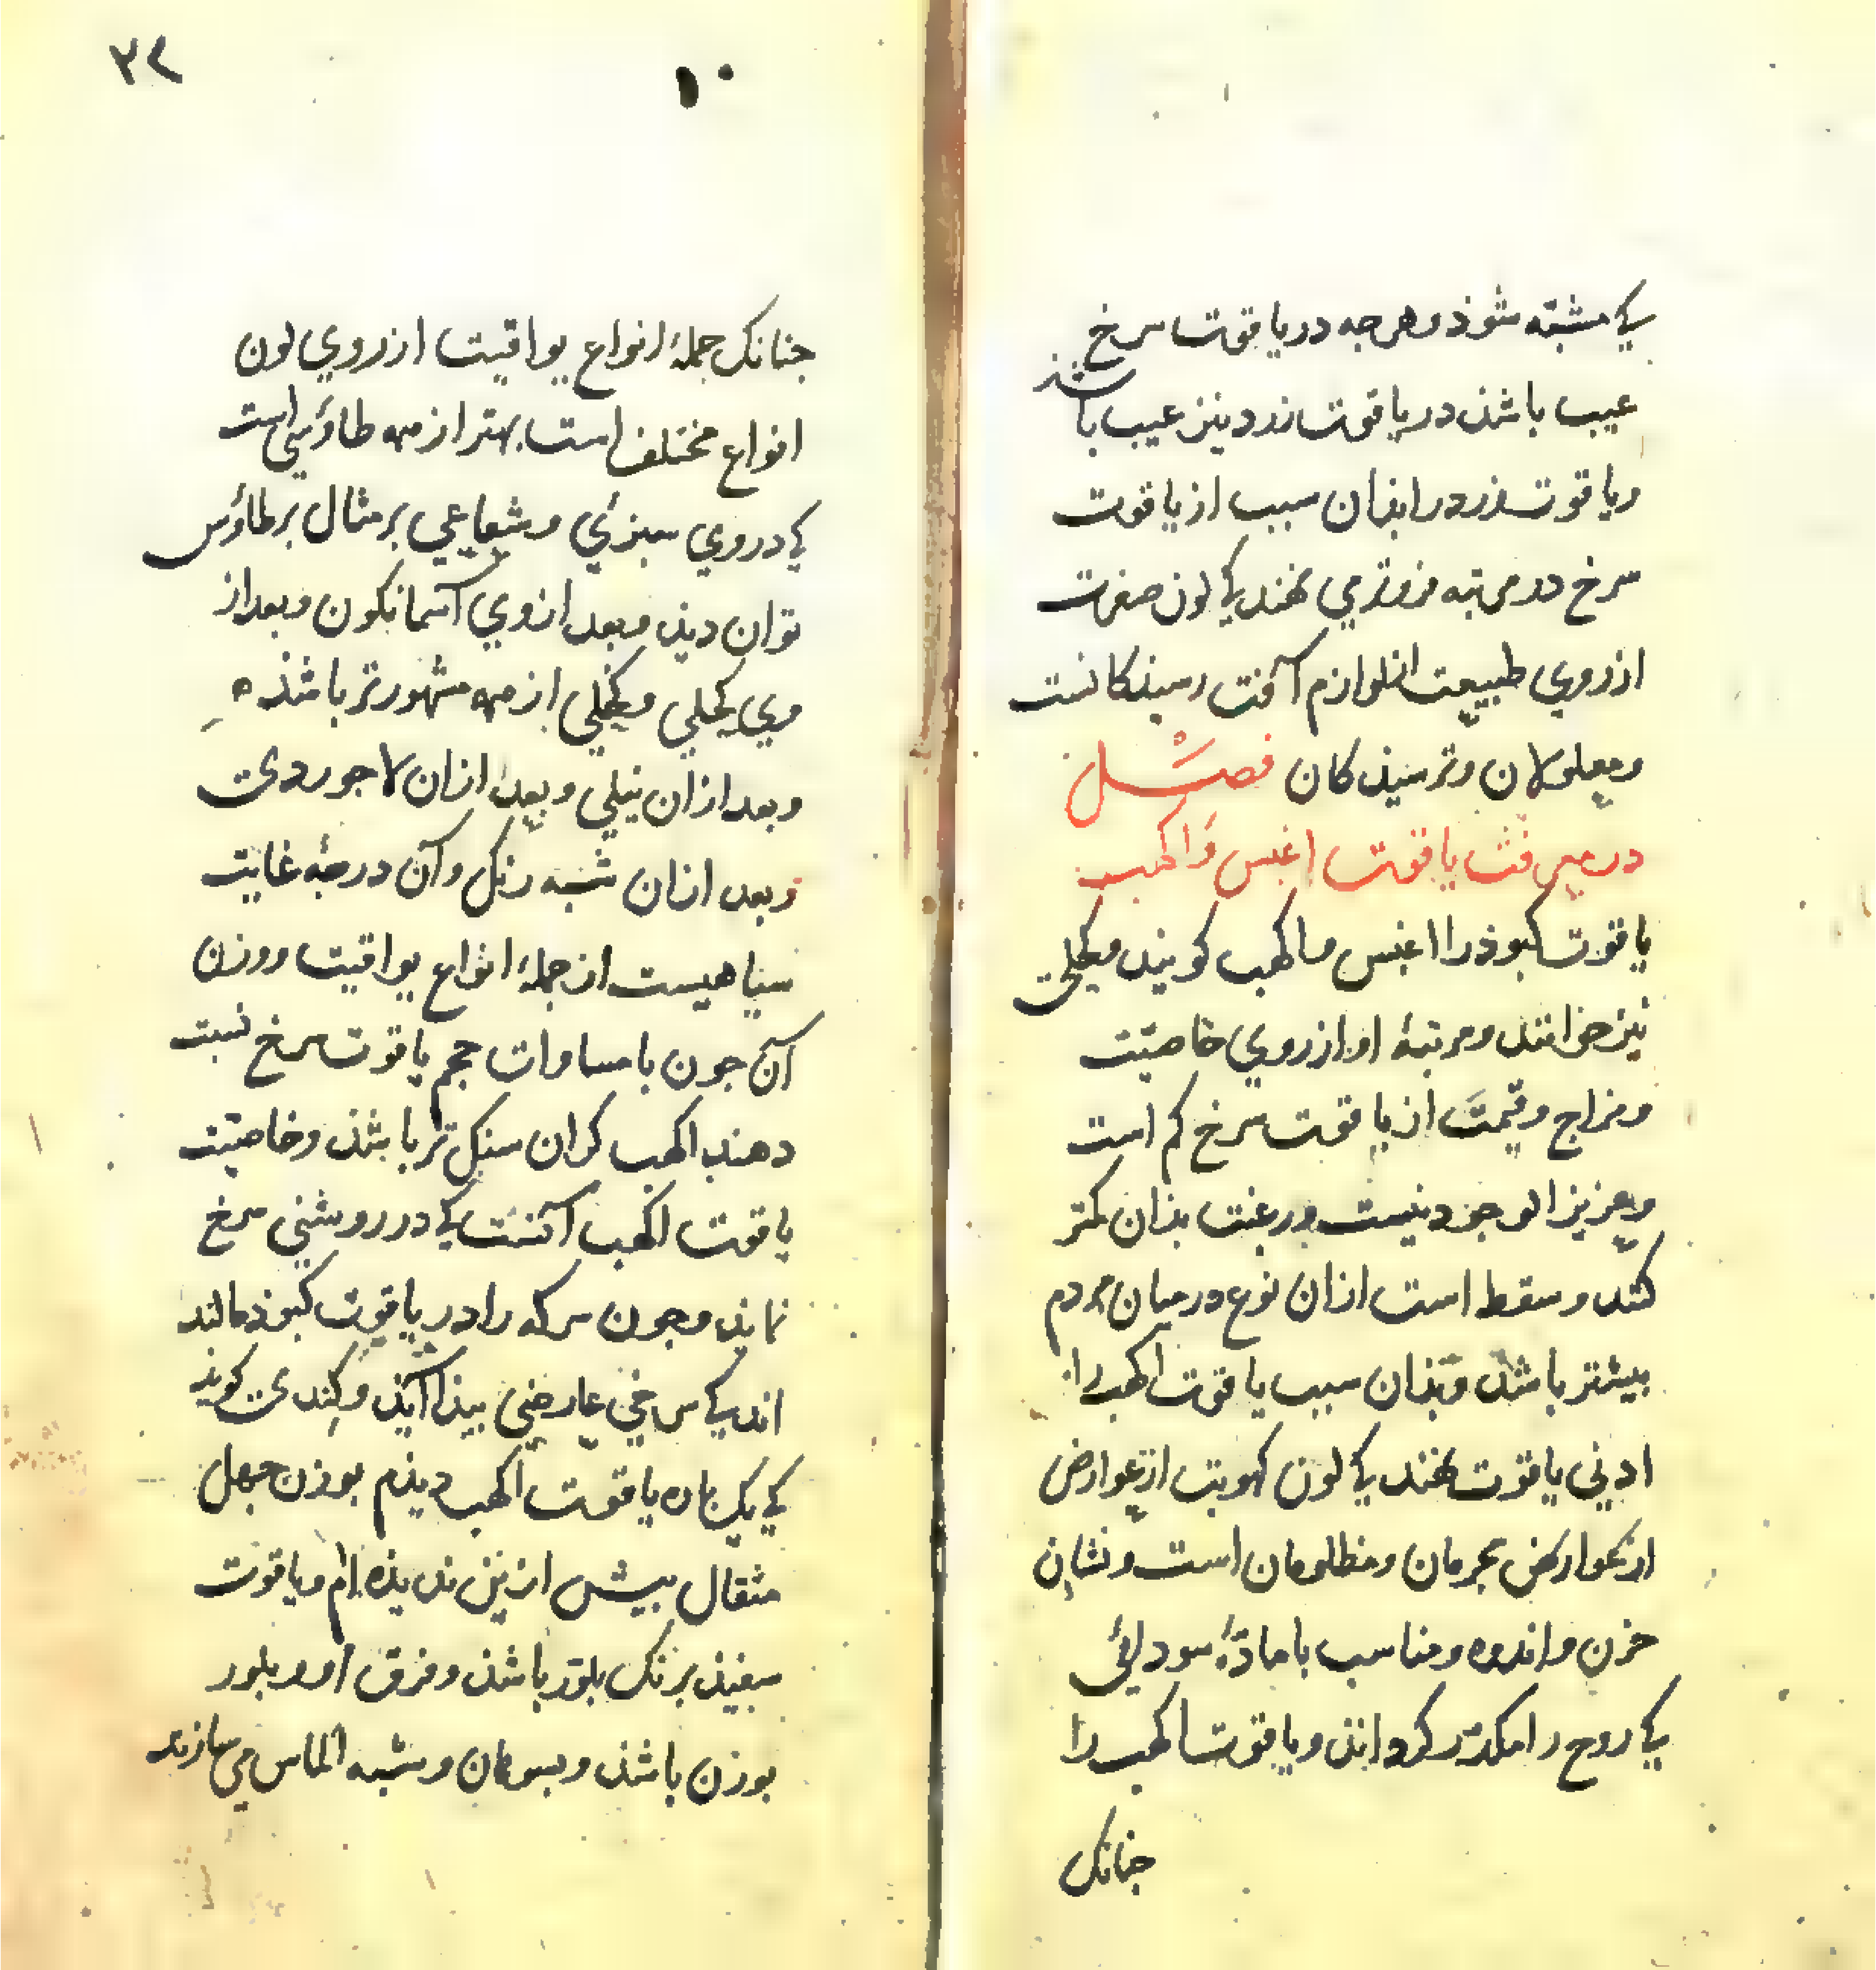 کی مشبّه شوذ و هرجه در یاقوت سرخ
عیب باشذ در یاقوت زرد نیز عیب باشذ
و یاقوت زرد را بذان سبب از یاقوت
سرخ در مرتبه فروتر می نهند کی لون صفرت
از روی طبیعت از لوازم آفت رسیذکانست
و معلولان و ترسیذکان فصل
در معرفت یاقوت اغبس و اکهب
یاقوت کبوذ را اغبس و اکهب کویند و کحلی
نیز خوانند و مرتبهٔ او از روی خاصیّت
و مزاج و قیمت از یاقوت سرخ کم است
و عزیز الوجود نیست و رغبت بذان کمتر
کنند و سقط است ازان نوع در میان مردم
بیشتر باشذ و بذان سبب یاقوت اکهب را
ادنی یاقوت نهند کی لون کهوبت از عوارض
محرمان و مظلومان است و نشان
حزن و اندوه و مناسب با مادّهٔ سودائی
کی روح را مکدّر کرداند و یاقوت اکهب را
جنانک
۳۲
۱۰
جنانک جملهٔ انواع یواقیت از روی لون
انواع مختلف است بهتر از همه طاؤسی است
کی در وی سبزئی و شعاعی بر مثال پر طاؤس
توان دیذ و بعد از وی آسمانکون و بعد از
وی کحلی و کحلی از همه مشهورتر باشذ ه
و بعد ازان نیلی و بعد ازان لاجوردی
و بعد ازان شبه رنک و آن درجهٔ غایت
سیاهیست از جملهٔ انواع یواقیت و وزن
آن جون با مساوات حجم یاقوت سرخ نسبت
دهند اکهب کران سنک تر باشذ و خاصیّت
یاقوت اکهب آنست کی در روشنی سرخ
نمایذ و جون سرکه را در یاقوت کبوذ مالند
اندکی سرخی عارضی بیذا آیذ و کندی کویذ
کی یک باره یاقوت اکهب دیذم بوزن جهل
مثقال بیش ازین ندیذه ام و یاقوت
سفیذ برنک بلور باشذ و فرق او و بلور
بوزن باشذ و بسوهان و شبه الماس می سازند